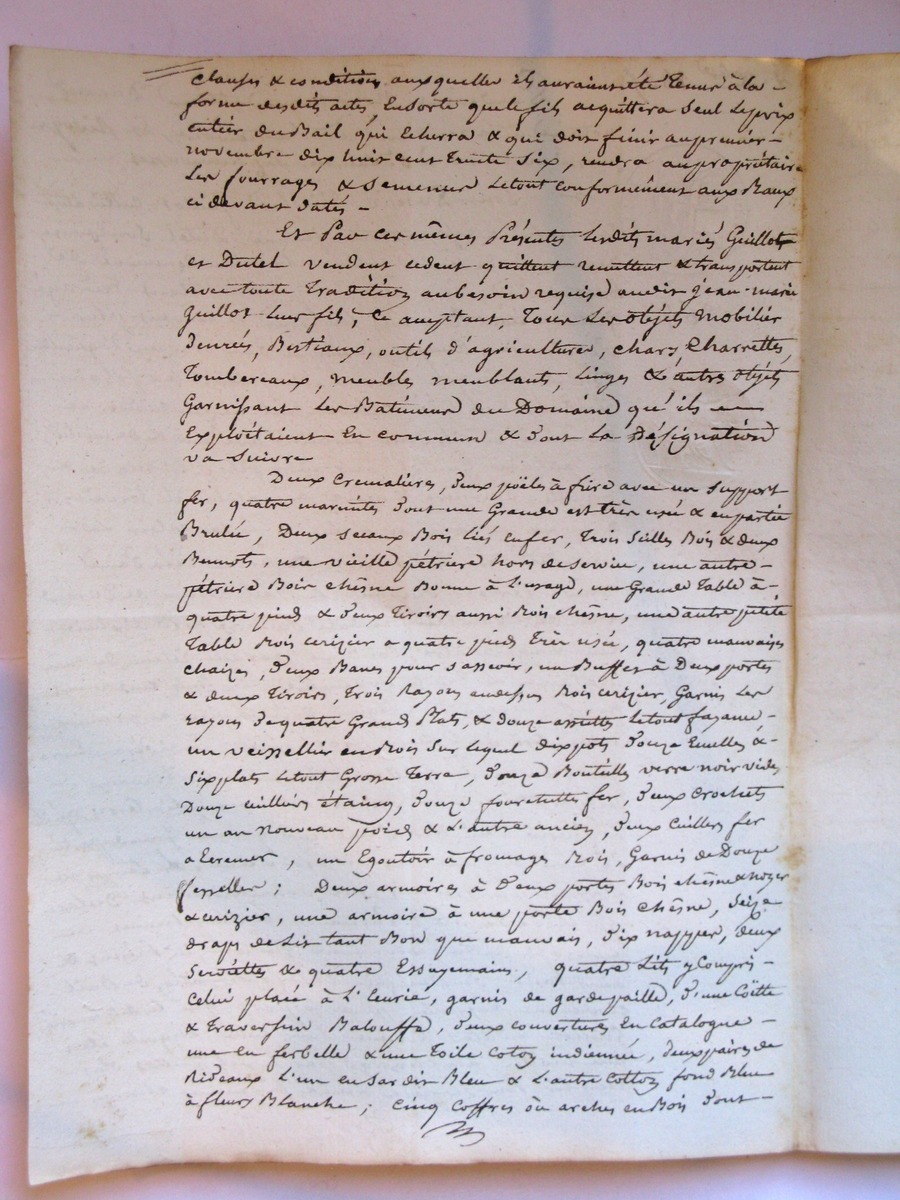 Clauses & conditions auxquelles ils auraient été tenus à la -
forme desdits actes, Ensorte que le fils acquittera seul le prix
entier du Bail qui Echerra & qui doit finir au premier -
novembre dix huit cent trente six, rendra au propriétaire
les fourrages & semences le tout conformément aux Baux
ci devant datés -
Et Par ces mêmes Présentes lesdits mariés Guillot
et Dutel vendent cedent quittent remettent & transportent
avec toute Tradition au besoin requise audit jean-marie
Guillot leur fils, Ce acceptant, Tous les objets mobiliers
denrées, Bestiaux, outils d'agriculture, chars, Charrettes,
Tombereaux, meubles meublants, linges & autres objets
Garnissant les Batiments du Domaine qu'ils —
Exploitaient En commun & dont la désignation
va suivre
Deux Cremalières, deux poëles à frire avec un support
fer, quatre marmites dont une Grande est très usée & en partie
Brulée, Deux seaux Bois liés en fer, trois seilles Bois & deux
Bennots, une vieille pétrière hors de service, une autre -
pétrière Bois chêsne Bonne à l'usage, une Grande Table à -
quatre pieds & deux tiroirs aussi Bois chêsne, une autre petite
table Bois cerizier a quatre pieds très usée, quatre mauvaises
chaizes, deux Bancs pour s'asseoir, un Buffet à Deux portes
& deux tiroirs, trois Rayons audessus Bois cerizier, Garnis les
rayons de quatre Grands Plats, & douze assiettes le tout fayance,
un veissellier en Bois sur lequel dix pots douze Ecuelles & -
six plats le tout Grosse Terre, douze Bouteilles verre noir vides
Douze cuilliers étaing, douze fourchettes fer, deux Crochets
un au nouveau poids & l'autre ancien, deux Cuillers fer
a Ecremer, un Egoutoir à fromages Bois, Garnis de Douze
fesselles; Deux armoires à deux portes Bois chêsne & noyer
& cerizier, une armoire à une porte Bois chêsne, seize
draps de lit tant Bon que mauvais, dix nappes, deux
Serviettes & quatre Essuyemains, quatre Lits y Compris -
Celui placé à l'Ecurie, garnis de gardepaille, d'une Coëtte
& traversin Balouffe, deux couvertures En Catalogne -
une en ferbelle & une Toile Coton indienne, deux paires de
Rideaux l'un en Sardir Bleu & l'autre Cotton fond Bleu
à fleurs Blanche; Cinq Coffres ou arches en Bois dont -